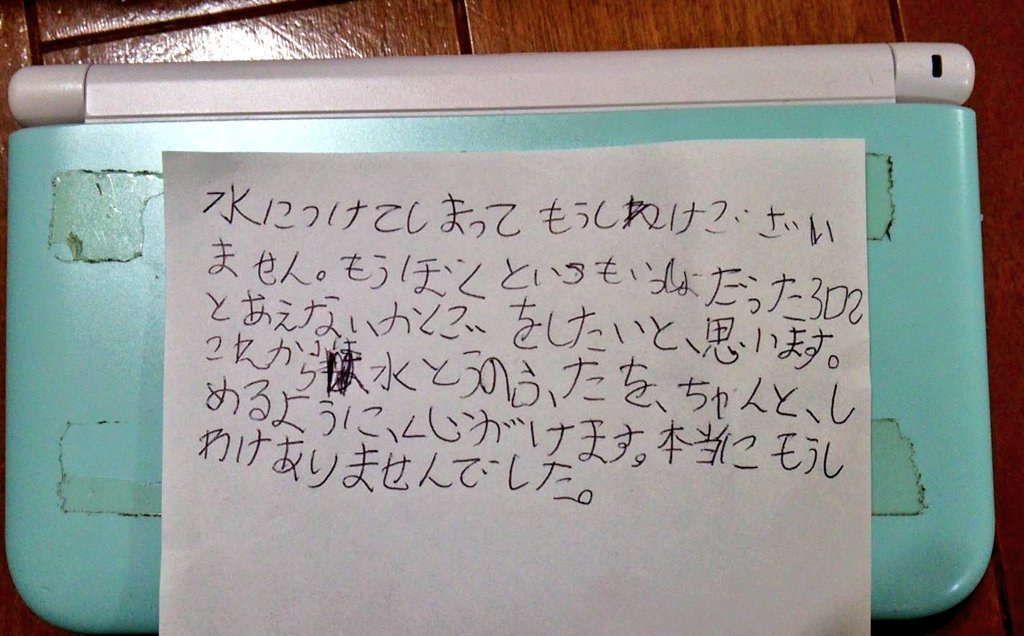 水につけてしまってもうしわけございい
ません。もうぼくといつもいっしょだった3DS
とあえないかくごをしたいと、思います。
これからは水とうのふ、たを、ちゃんと、し
めるように、くじがけます。本当にもうし
わけありませんでした。